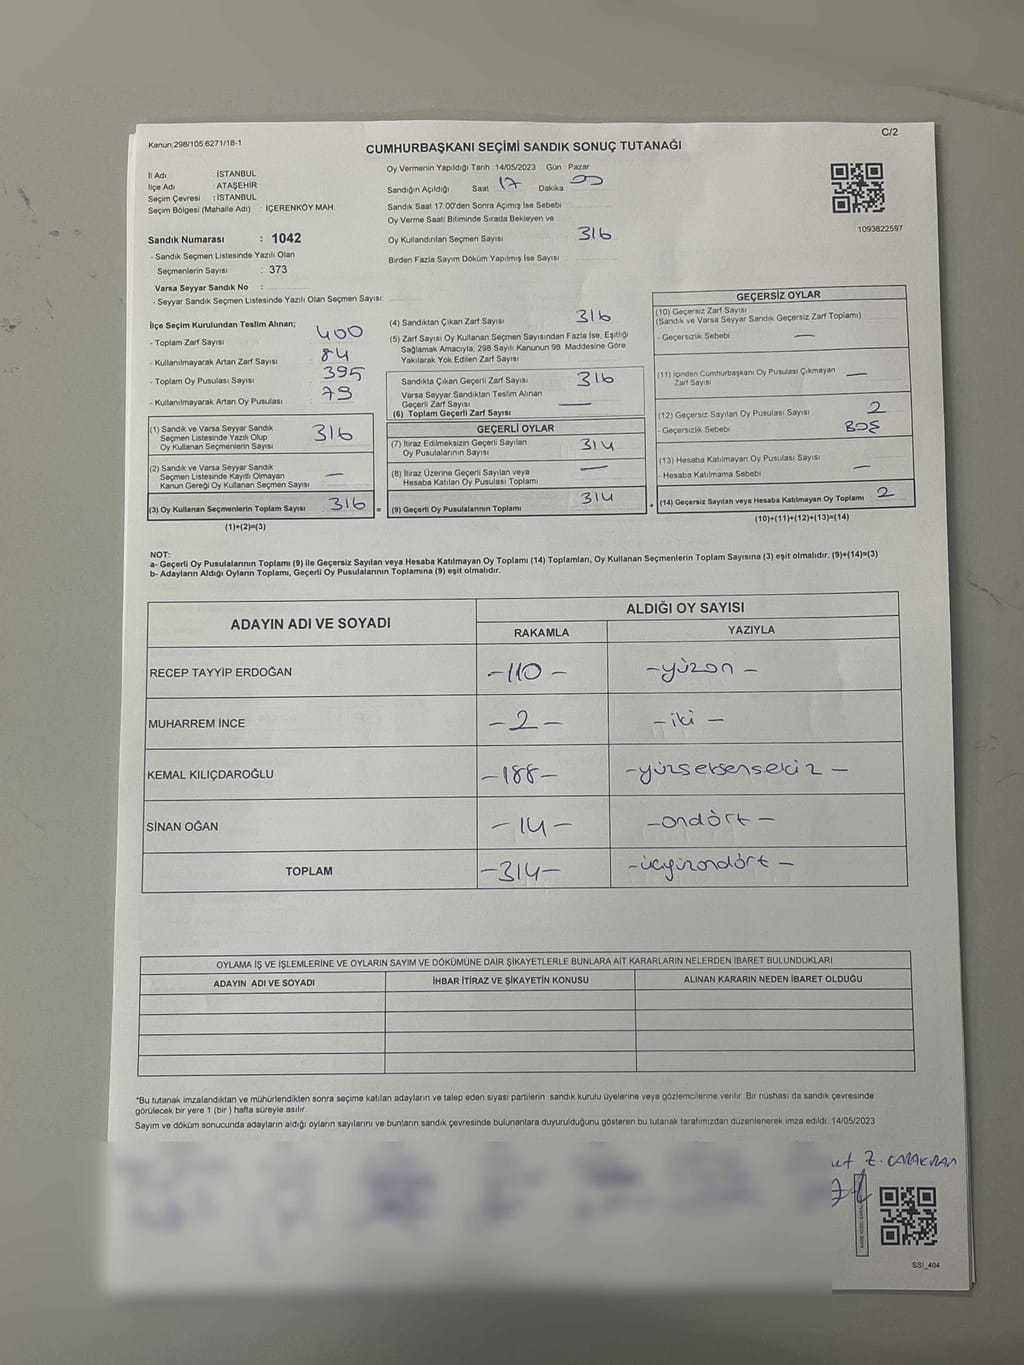 Kanun:298/105,6271/18-1
C/2
CUMHURBAŞKANI SEÇİMİ SANDIK SONUÇ TUTANAĞI
İl Adı : İSTANBUL
İlçe Adı : ATAŞEHİR
Seçim Çevresi : İSTANBUL
Seçim Bölgesi (Mahalle Adı) İÇERENKÖY MAH.
Oy Vermenin Yapıldığı Tarih 14/05/2023 Gün Pazar
Sandığın Açıldığı Saat 17 Dakika 00
Sandık Saat 17:00'den Sonra Açımış İse Sebebi
Oy Verme Saati Bitiminde Sırada Bekleyen ve
Oy Kullandırılan Seçmen Sayısı 316
Birden Fazla Sayım Döküm Yapılmış İse Sayısı
1093822597
Sandık Numarası : 1042
- Sandık Seçmen Listesinde Yazılı Olan
Seçmenlerin Sayısı : 373
Varsa Seyyar Sandık No :
- Seyyar Sandık Seçmen Listesinde Yazılı Olan Seçmen Sayısı:
İlçe Seçim Kurulundan Teslim Alınan;
- Toplam Zarf Sayısı 400
- Kullanılmayarak Artan Zarf Sayısı 84
- Toplam Oy Pusulası Sayısı 395
- Kullanılmayarak Artan Oy Pusulası 79
(1) Sandık ve Varsa Seyyar Sandık
Seçmen Listesinde Yazılı Olup
Oy Kullanan Seçmenlerin Sayısı 316
(2) Sandık ve Varsa Seyyar Sandık
Seçmen Listesinde Kayıtlı Olmayan
Kanun Gereği Oy Kullanan Seçmen Sayısı —
(3) Oy Kullanan Seçmenlerin Toplam Sayısı 316 =
(1)+(2)=(3)
(4) Sandıktan Çıkan Zarf Sayısı 316
(5) Zarf Sayısı Oy Kullanan Seçmen Sayısından Fazla İse, Eşitliği
Sağlamak Amacıyla, 298 Sayılı Kanunun 98. Maddesine Göre
Yakılarak Yok Edilen Zarf Sayısı
Sandıkta Çıkan Geçerli Zarf Sayısı 316
Varsa Seyyar Sandıktan Teslim Alınan
Geçerli Zarf Sayısı —
(6) Toplam Geçerli Zarf Sayısı
GEÇERLİ OYLAR
(7) İtiraz Edilmeksizin Geçerli Sayılan
Oy Pusulalarının Sayısı 314
(8) İtiraz Üzerine Geçerli Sayılan veya
Hesaba Katılan Oy Pusulası Toplamı —
(9) Geçerli Oy Pusulalarının Toplamı 314 +
GEÇERSİZ OYLAR
(10) Geçersiz Zarf Sayısı
(Sandık ve Varsa Seyyar Sandık Geçersiz Zarf Toplamı)
- Geçersizlik Sebebi —
(11) İçinden Cumhurbaşkanı Oy Pusulası Çıkmayan
Zarf Sayısı —
(12) Geçersiz Sayılan Oy Pusulası Sayısı 2
- Geçersizlik Sebebi BOŞ
(13) Hesaba Katılmayan Oy Pusulası Sayısı
- Hesaba Katılmama Sebebi —
(14) Geçersiz Sayılan veya Hesaba Katılmayan Oy Toplamı 2
(10)+(11)+(12)+(13)=(14)
NOT:
a- Geçerli Oy Pusulalarının Toplamı (9) ile Geçersiz Sayılan veya Hesaba Katılmayan Oy Toplamı (14) Toplamları, Oy Kullanan Seçmenlerin Toplam Sayısına (3) eşit olmalıdır. (9)+(14)=(3)
b- Adayların Aldığı Oyların Toplamı, Geçerli Oy Pusulalarının Toplamına (9) eşit olmalıdır.
ADAYIN ADI VE SOYADI
ALDIĞI OY SAYISI
RAKAMLA YAZIYLA
RECEP TAYYİP ERDOĞAN -110- -yüzon-
MUHARREM İNCE -2- -iki-
KEMAL KILIÇDAROĞLU -188- -yüzseksensekiz-
SİNAN OĞAN -14- -ondört-
TOPLAM -314- -üçyüzondört-
OYLAMA İŞ VE İŞLEMLERİNE VE OYLARIN SAYIM VE DÖKÜMÜNE DAİR ŞİKAYETLERLE BUNLARA AİT KARARLARIN NELERDEN İBARET BULUNDUKLARI
ADAYIN ADI VE SOYADI İHBAR İTİRAZ VE ŞİKAYETİN KONUSU ALINAN KARARIN NEDEN İBARET OLDUĞU
*Bu tutanak imzalandıktan ve mühürlendikten sonra seçime katılan adayların ve talep eden siyasi partilerin sandık kurulu üyelerine veya gözlemcilerine verilir. Bir nüshası da sandık çevresinde
görülecek bir yere 1 (bir ) hafta süreyle asılır.
Sayım ve döküm sonucunda adayların aldığı oyların sayılarını ve bunların sandık çevresinde bulunanlara duyurulduğunu gösteren bu tutanak tarafımızdan düzenlenerek imza edildi. 14/05/2023
SSI_404